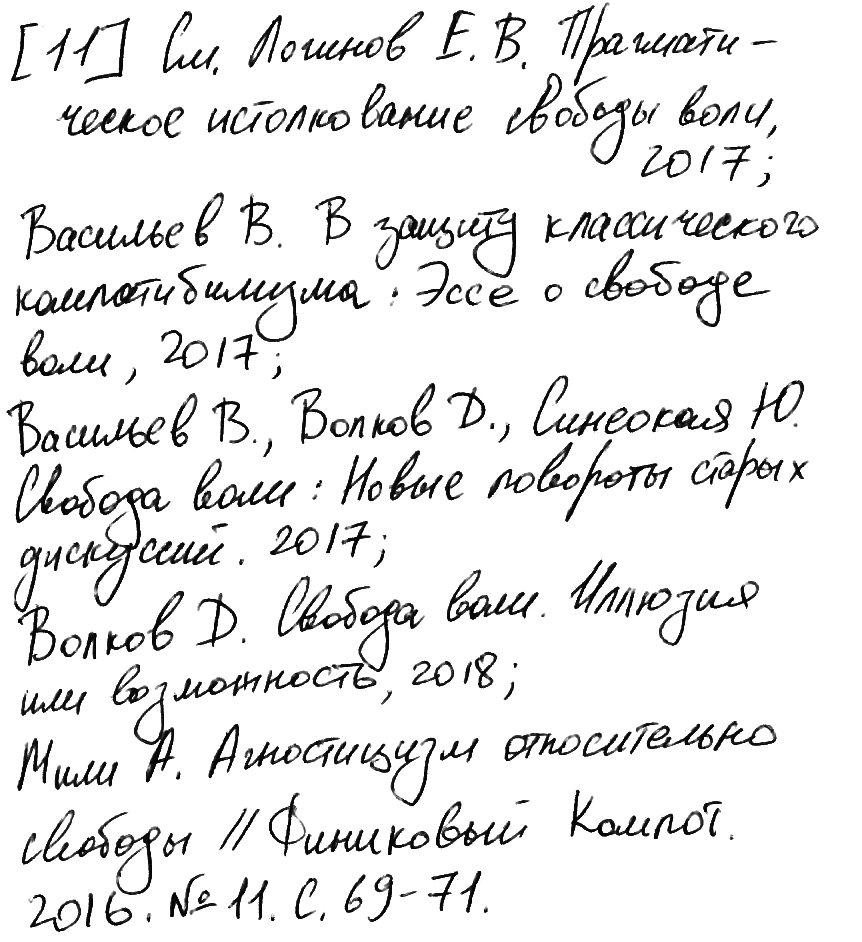 [11] См. Логинов Е. В. Прагмати-
ческое истолкование свободы воли,
2017;
Васильев В. В защиту классического
компатибилизма: Эссе о свободе
воли, 2017;
Васильев В., Волков Д., Синеокая Ю.
Свобода воли: Новые повороты старых
дискуссий. 2017;
Волков Д. Свобода воли. Иллюзия
или возможность, 2018;
Мили А. Агностицизм относительно
свободы // Финиковый Компот.
2016. №11. С. 69-71.